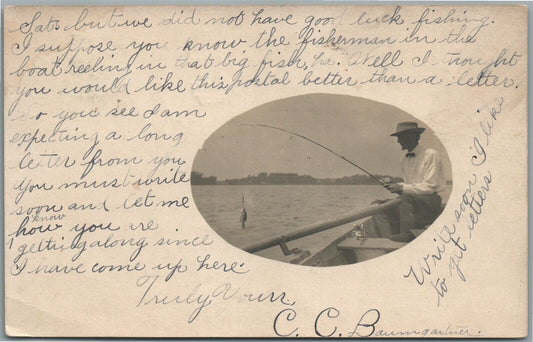 Sat. but we did not have good luck fishing.
I suppose you know the fisherman in the
boat reeling in that big fish, ha. Well I trought
you would like this postal better than a letter.
So you see I am
expecting a long
letter from you
you must write
soon and let me
know
how you are
getting along since
I have come up here.
Truly Yours,
C. C. Baumgartner.
Write soon I like
to get letters